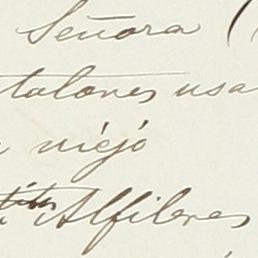 Señora (
talones usa
viejo
Alfileres